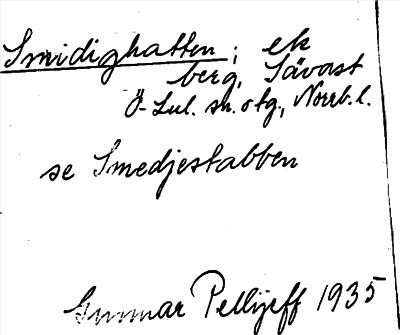 Smidighatten; ek
berg, Sävast
Ö-Lul. sn. o tg, Norrb. l.
se Smedjestabben
Gunnar Pellijeff 1935